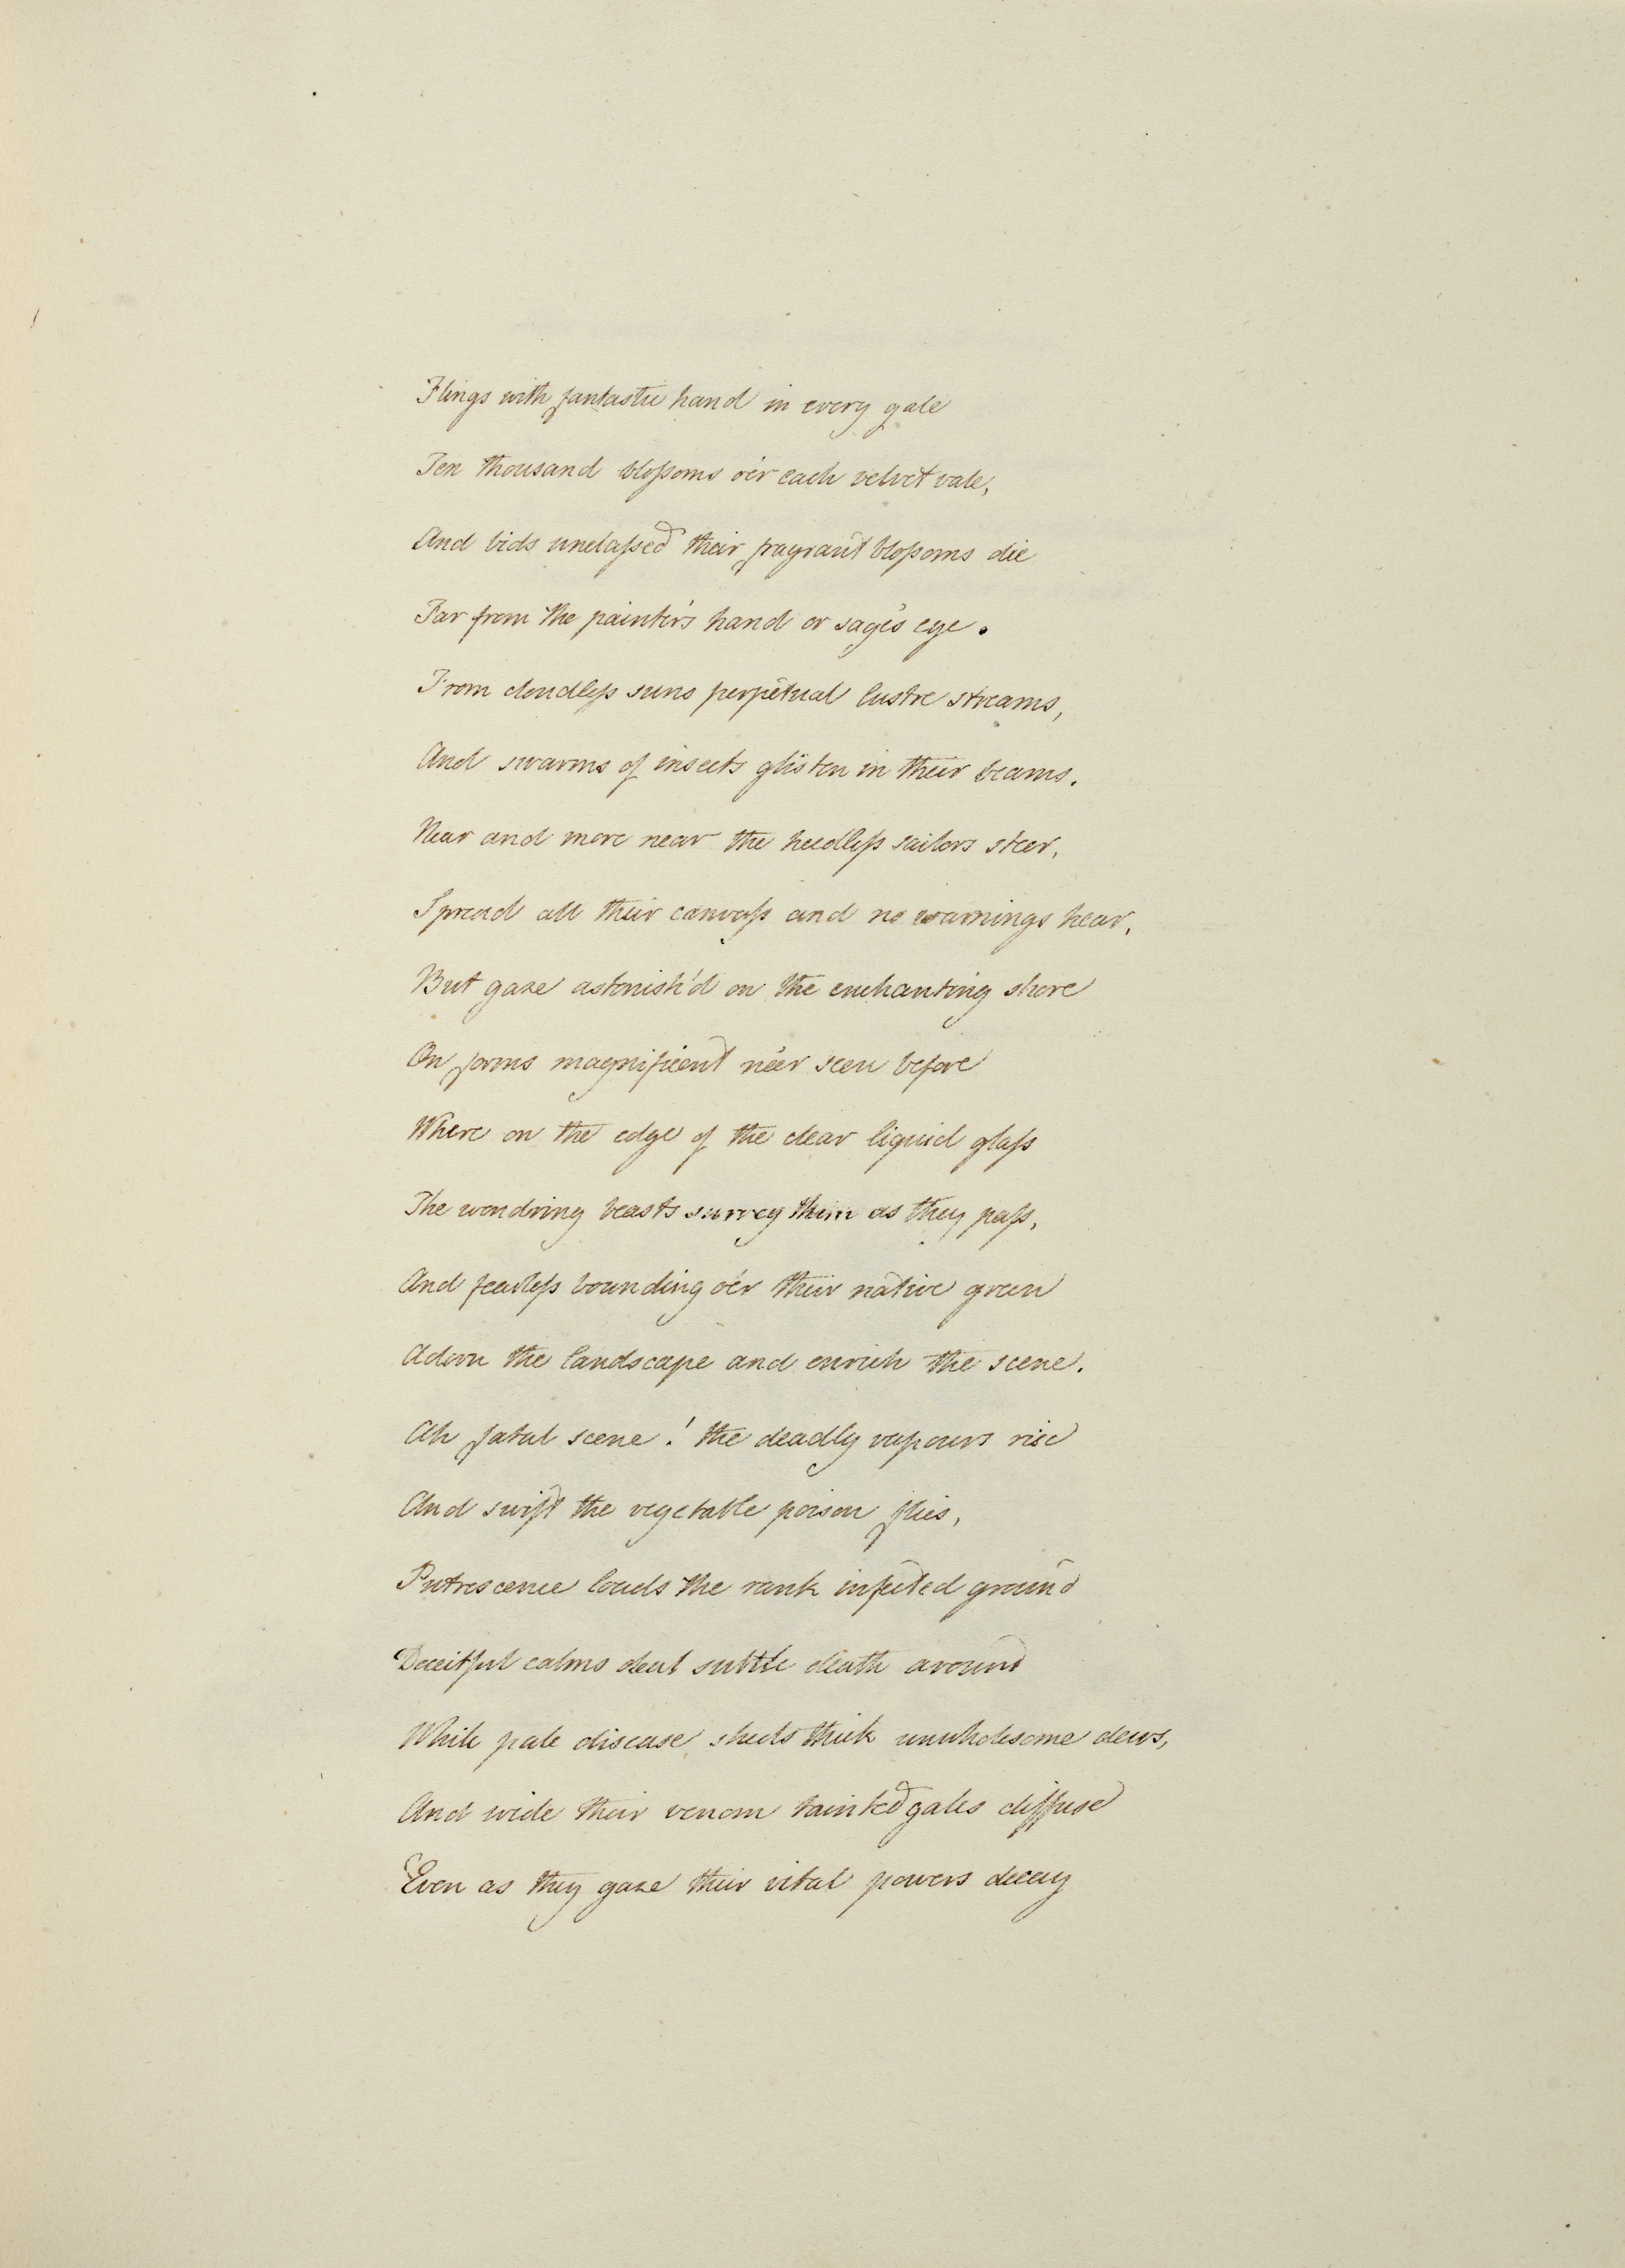 Flings with fantastic hand in every gale
Ten thousand bloſsoms o'er each velvet vale,
And bids unclaſsed their fragrant bloſsoms die
Far from the painter's hand or sage's eye.
From cloudleſs suns perpetual lustre streams,
And swarms of insects glisten in their beams.
Near and more near the heedleſs sailors steer,
Spread all their canvaſs and no warnings hear,
But gaze astonish'd on the enchanting shore
On forms magnificent ne'er seen before
Where on the edge of the clear liquid glaſs
The wondring beasts survey them as they paſs,
And fearleſs bounding o'er their native green
Adorn the landscape and enrich the scene.
Ah fatal scene! the deadly vapours rise
And swift the vegetable poison flies,
Putrescence loads the rank infected ground
Deceitful calms deal subtle death around
While pale disease sheds thick unwholesome dews,
And wide their venom tainted gales diffuse
Even as they gaze their vital powers decay